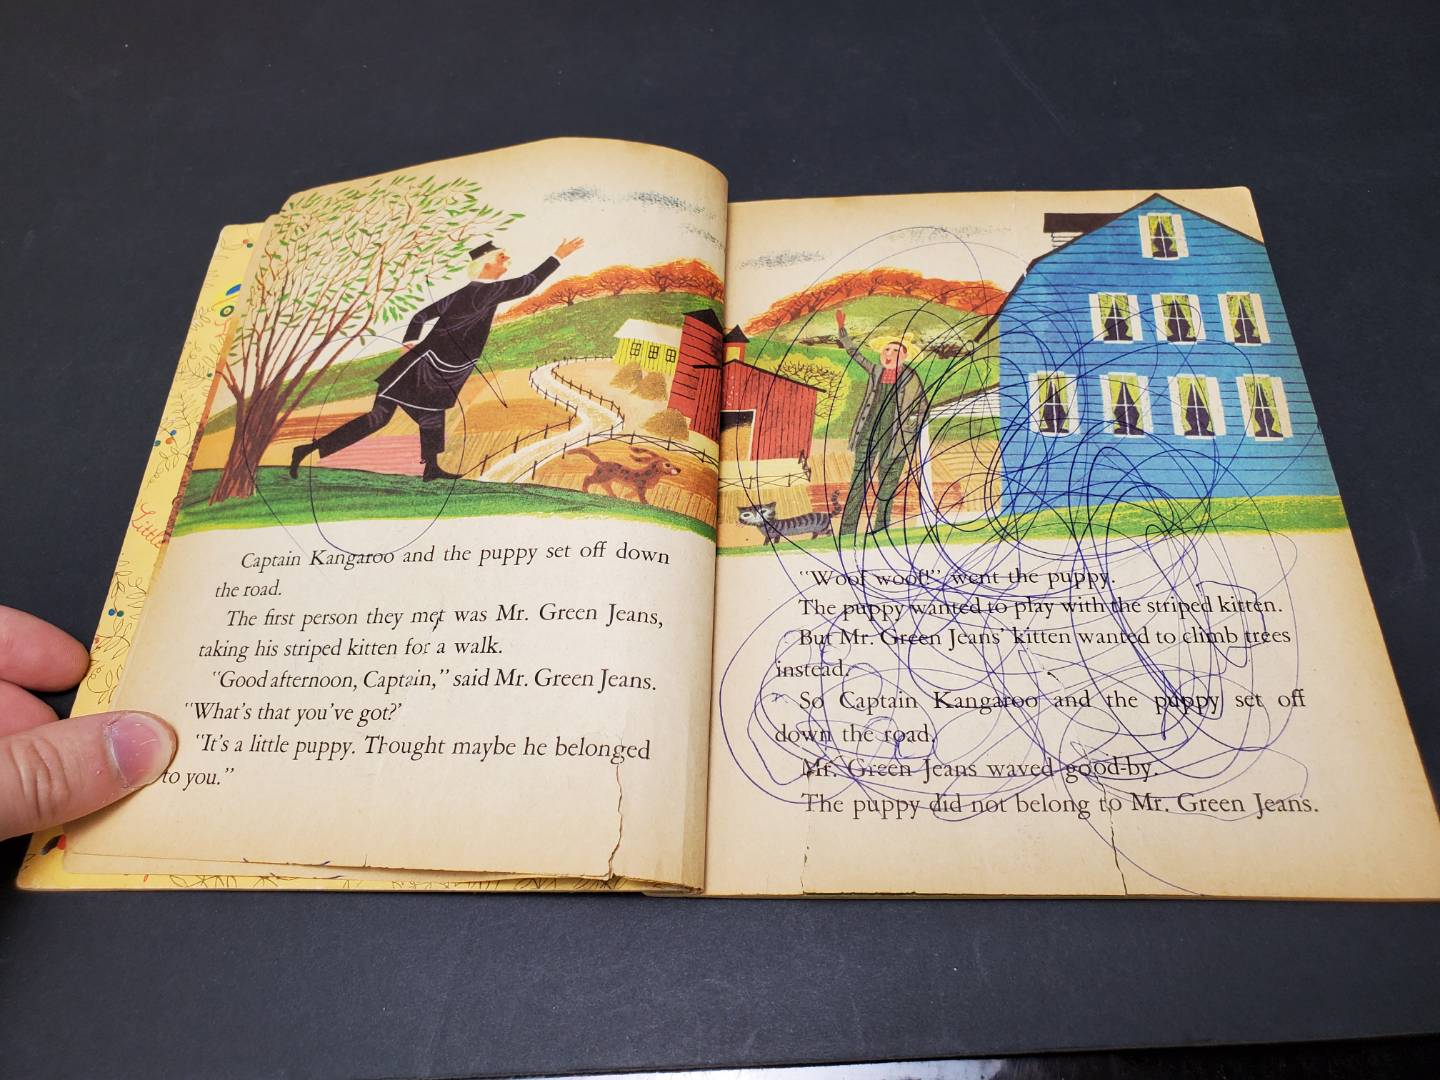 Little
Captain Kangaroo and the puppy set off down
the road.
The first person they met was Mr. Green Jeans,
taking his striped kitten for a walk.
"Good afternoon, Captain," said Mr. Green Jeans.
"What's that you've got?"
"It's a little puppy. Thought maybe he belonged
to you."
"Woof woof!" went the puppy.
The puppy wanted to play with the striped kitten.
But Mr. Green Jeans' kitten wanted to climb trees
instead.
So Captain Kangaroo and the puppy set off
down the road.
Mr. Green Jeans waved good-by.
The puppy did not belong to Mr. Green Jeans.